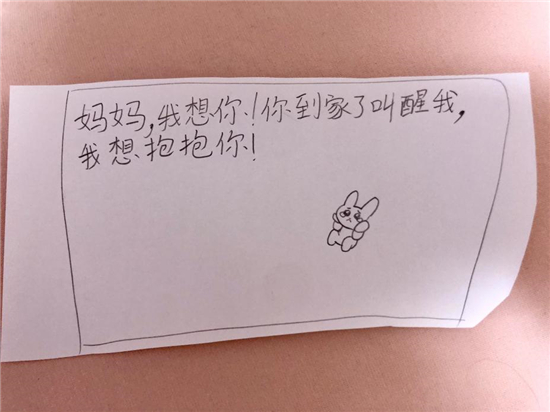 妈妈,我想你!你到家了叫醒我,
我想抱抱你!